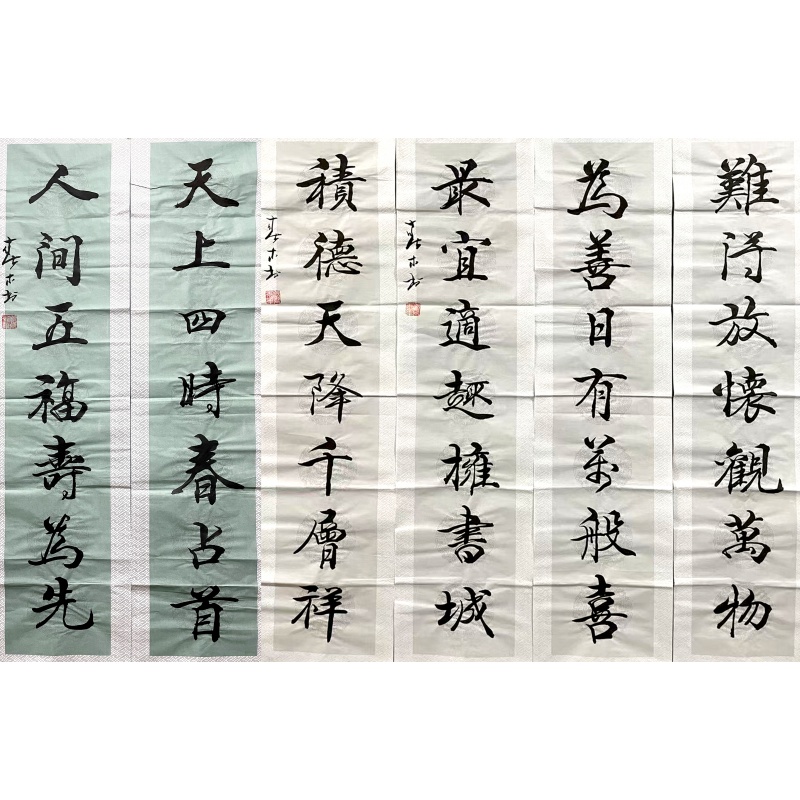 難得放懷觀萬物
為善日有萬般喜
最宜適趣擁書城
積德天降千層祥
天上四時春占首
人間五福壽為先